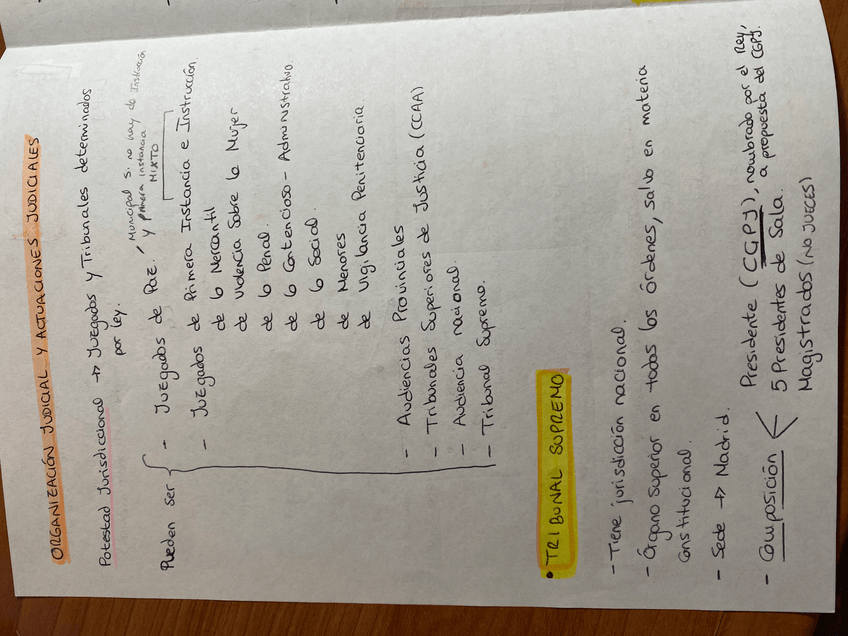 ORGANIZACIÓN JUDICIAL Y ACTUACIONES JUDICIALES
Potestad Jurisdiccional → Juzgados y Tribunales determinados
por ley.
Pueden ser
- Juzgados de Paz.
Municipal si no hay de Instrucción
y primera instancia
MIXTO
- Juzgados de Primera Instancia e Instrucción.
de lo Mercantil
de Violencia Sobre la Mujer
de lo Penal.
de lo Contencioso - Administrativo.
de lo Social.
de Menores
de Vigilancia Penitenciaria
- Audiencias Provinciales
- Tribunales Superiores de Justicia (CCAA)
- Audiencia nacional.
- Tribunal Supremo.
• TRIBUNAL SUPREMO
- Tiene jurisdicción nacional.
- Órgano Superior en todos los órdenes, salvo en materia
Constitucional.
- Sede → Madrid.
- Composición < Presidente (CGPJ), nombrado por el Rey,
a propuesta del CGPJ.
5 Presidentes de Sala.
Magistrados (NO JUECES)